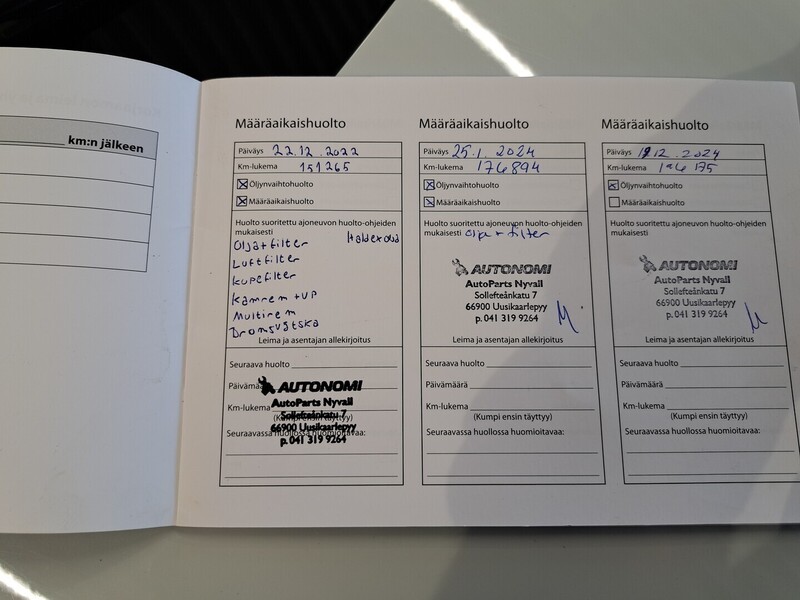 km:n jälkeen
Määräaikaishuolto
Päiväys 22.12.2022
Km-lukema 151265
Öljynvaihtohuolto
Määräaikaishuolto
Huolto suoritettu ajoneuvon huolto-ohjeiden
mukaisesti
Olja+filter Haldexolja
Luftfilter
Kupefilter
Kamrem +VP
Multirem
Bromsvätska
Leima ja asentajan allekirjoitus
Seuraava huolto
AUTONOMI
AutoParts Nyvall
Km-lukema
Sollefteånkatu 7
(Kumpi ensin täyttyy)
66900 Uusikaarlepyy
Seuraavassa huollossa huomioitavaa:
p. 041 319 9264
Määräaikaishuolto
Päiväys 25.1.2024
Km-lukema 176894
Öljynvaihtohuolto
Määräaikaishuolto
Huolto suoritettu ajoneuvon huolto-ohjeiden
mukaisesti Olja + filter
AUTONOMI
AutoParts Nyvall
Sollefteånkatu 7
66900 Uusikaarlepyy
p. 041 319 9264
Leima ja asentajan allekirjoitus
Seuraava huolto
Päivämäärä
Km-lukema
(Kumpi ensin täyttyy)
Seuraavassa huollossa huomioitavaa:
Määräaikaishuolto
Päiväys 12.2024
Km-lukema
Öljynvaihtohuolto
Määräaikaishuolto
Huolto suoritettu ajoneuvon huolto-ohjeiden
mukaisesti
AUTONOMI
AutoParts Nyvall
Sollefteånkatu 7
66900 Uusikaarlepyy
p. 041 319 9264
Leima ja asentajan allekirjoitus
Seuraava huolto
Päivämäärä
Km-lukema
(Kumpi ensin täyttyy)
Seuraavassa huollossa huomioitavaa: